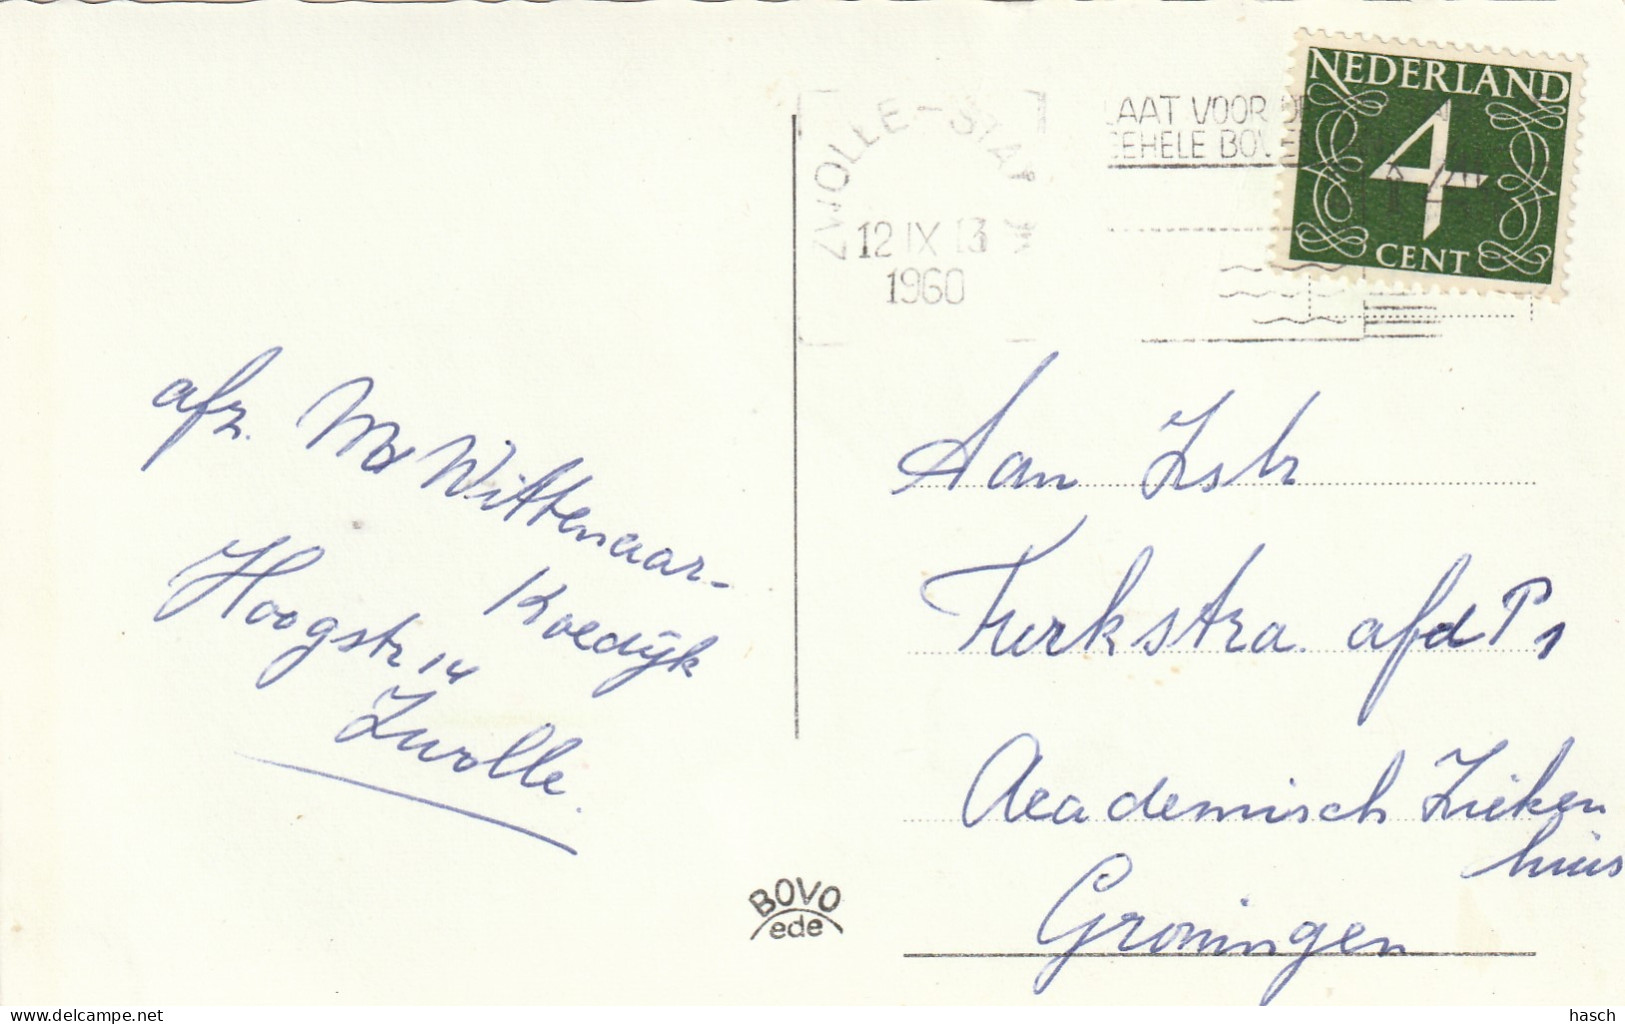 NEDERLAND
4
CENT
ZWOLLE-STA
12 IX 13
1960
LAAT VOOR
GEHELE BOV
afz. M Wittenaar-
Koedijk
Hoogstr 14
Zwolle.
Aan Zstr
Turkstra. afd P1
Academisch Zieken
huis
Groningen
BOVO
ede
delcampe.net
hasch